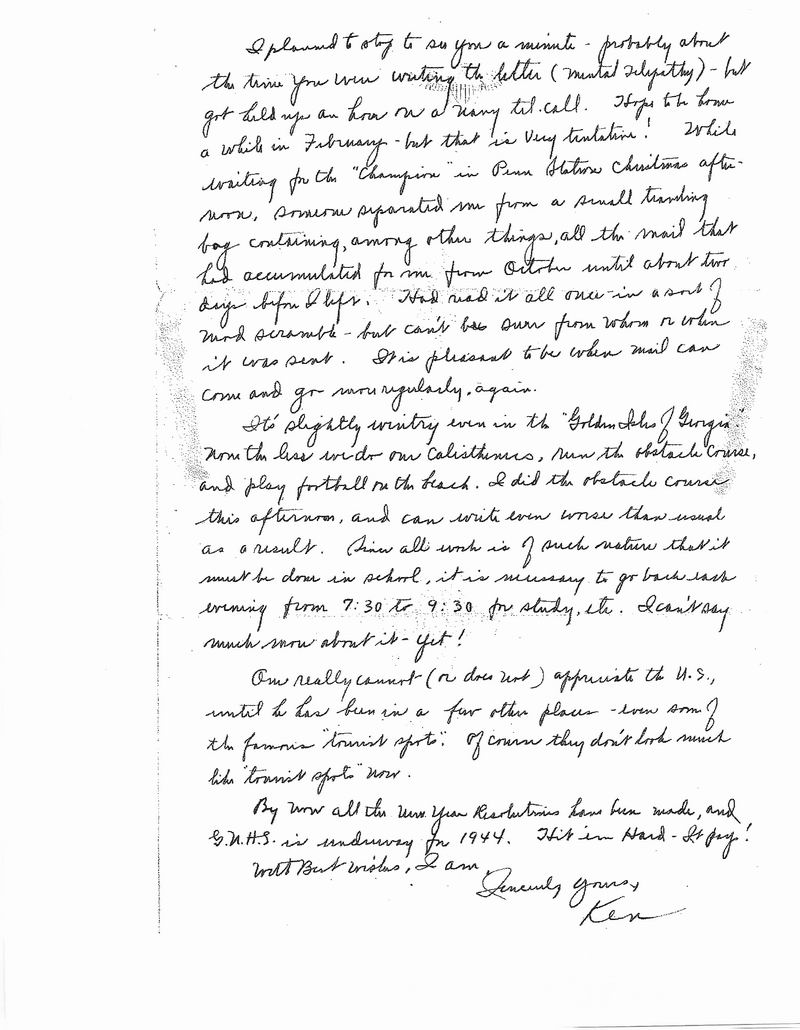 I planned to stop to see you a minute - probably about
the time you were writing the letter (mental telepathy) - but
got held up an hour on a Navy tel. call. Hope to be home
a while in February - but that is very tentative! While
waiting for the "Champion" in Penn Station Christmas after-
noon, someone separated me from a small traveling
bag containing, among other things, all the mail that
had accumulated for me from October until about two
days before I left. Had read it all once - in a sort of
mad scramble - but can't be sure from whom or when
it was sent. It is pleasant to be where mail can
come and go more regularly, again.
It's slightly wintry even in the "Golden Isles of Georgia"
None the less we do our Calisthenics, run the obstacle course,
and play football on the beach. I did the obstacle course
this afternoon, and can write even worse than usual
as a result. Since all work is of such nature that it
must be done in school, it is necessary to go back each
evening from 7:30 to 9:30 for study, etc. I can't say
much more about it - yet!
One really cannot (or does not) appreciate the U.S.,
until he has been in a few other places - even some of
the famous "tourist spots". Of course they don't look much
like "tourist spots" now.
By now all the New Year Resolutions have been made, and
G.N.H.S. is underway for 1944. Hit 'em Hard - It pays!
With Best Wishes, I am,
Sincerely Yours,
Ken